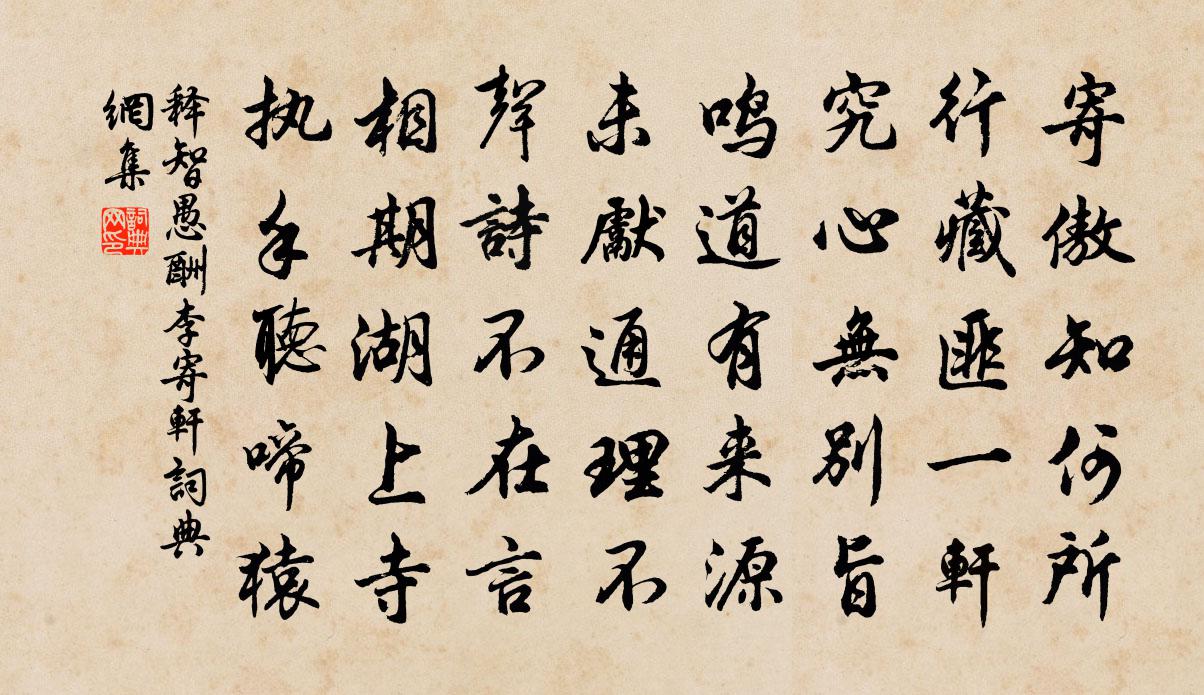 寄傲知何所
行藏匪一軒
究心無別旨
鸣道有来源
未獻通理不
聲詩不在言
相期湖上寺
执手聽啼猿
释智愚酬李寄軒詞典
網集
詞典网印